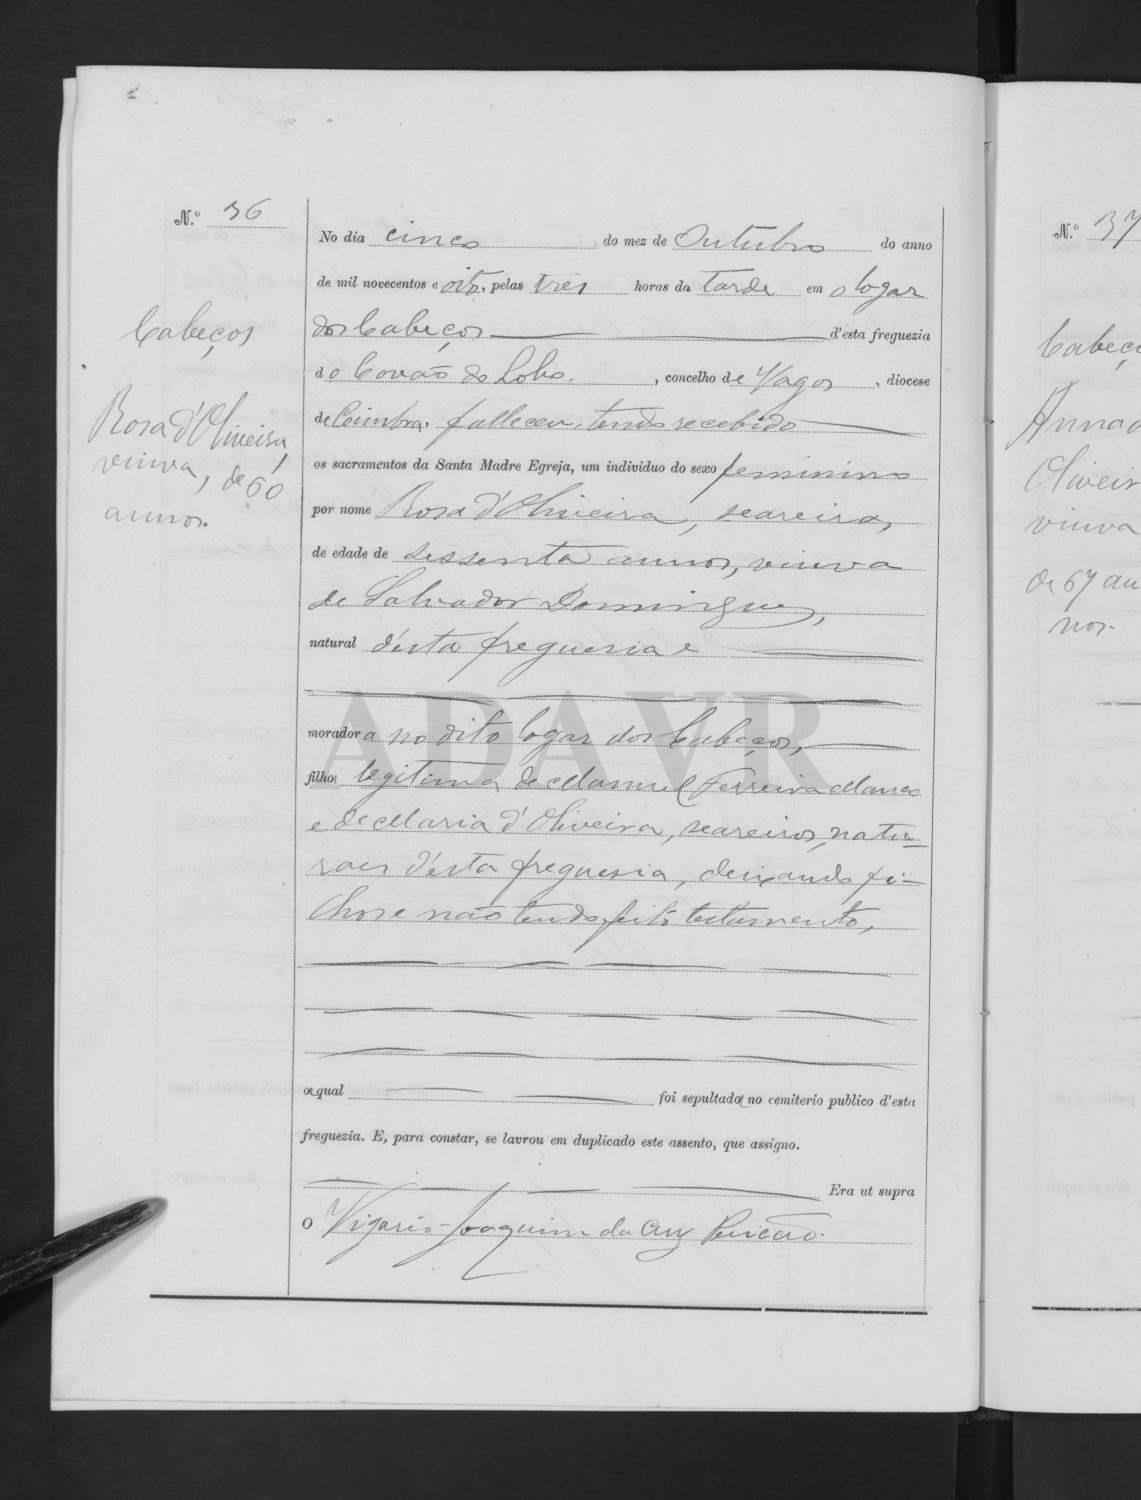 N.º 36
Cabeços
Rosa d'Oliveira,
viuva, de 60
annos.
No dia cinco do mez de Outubro do anno
de mil novecentos e oito, pelas tres horas da tarde em o logar
dos Cabeços d'esta freguezia
do Covão do Lobo, concelho de Vagos, diocese
de Coimbra, falleceu, tendo recebido
os sacramentos da Santa Madre Egreja, um individuo do sexo feminino
por nome Rosa d'Oliveira, seareira,
de edade de sessenta annos, viuva
de Salvador Domingues,
natural d'esta freguesia e
moradora no dito logar dos Cabeços,
filha legitima de Manuel Ferreira
e de Maria d'Oliveira, seareiros, natu-
raes d'esta freguesia, deixando fi-
lhos e não tendo feito testamento,
a qual foi sepultada no cemiterio publico d'esta
freguezia. E, para constar, se lavrou em duplicado este assento, que assigno.
Era ut supra
O Vigario Joaquim da Cruz
ADAVR
N.º 37
Cabeço
Anna d
Oliveir
viuva
de 67 an
nos.